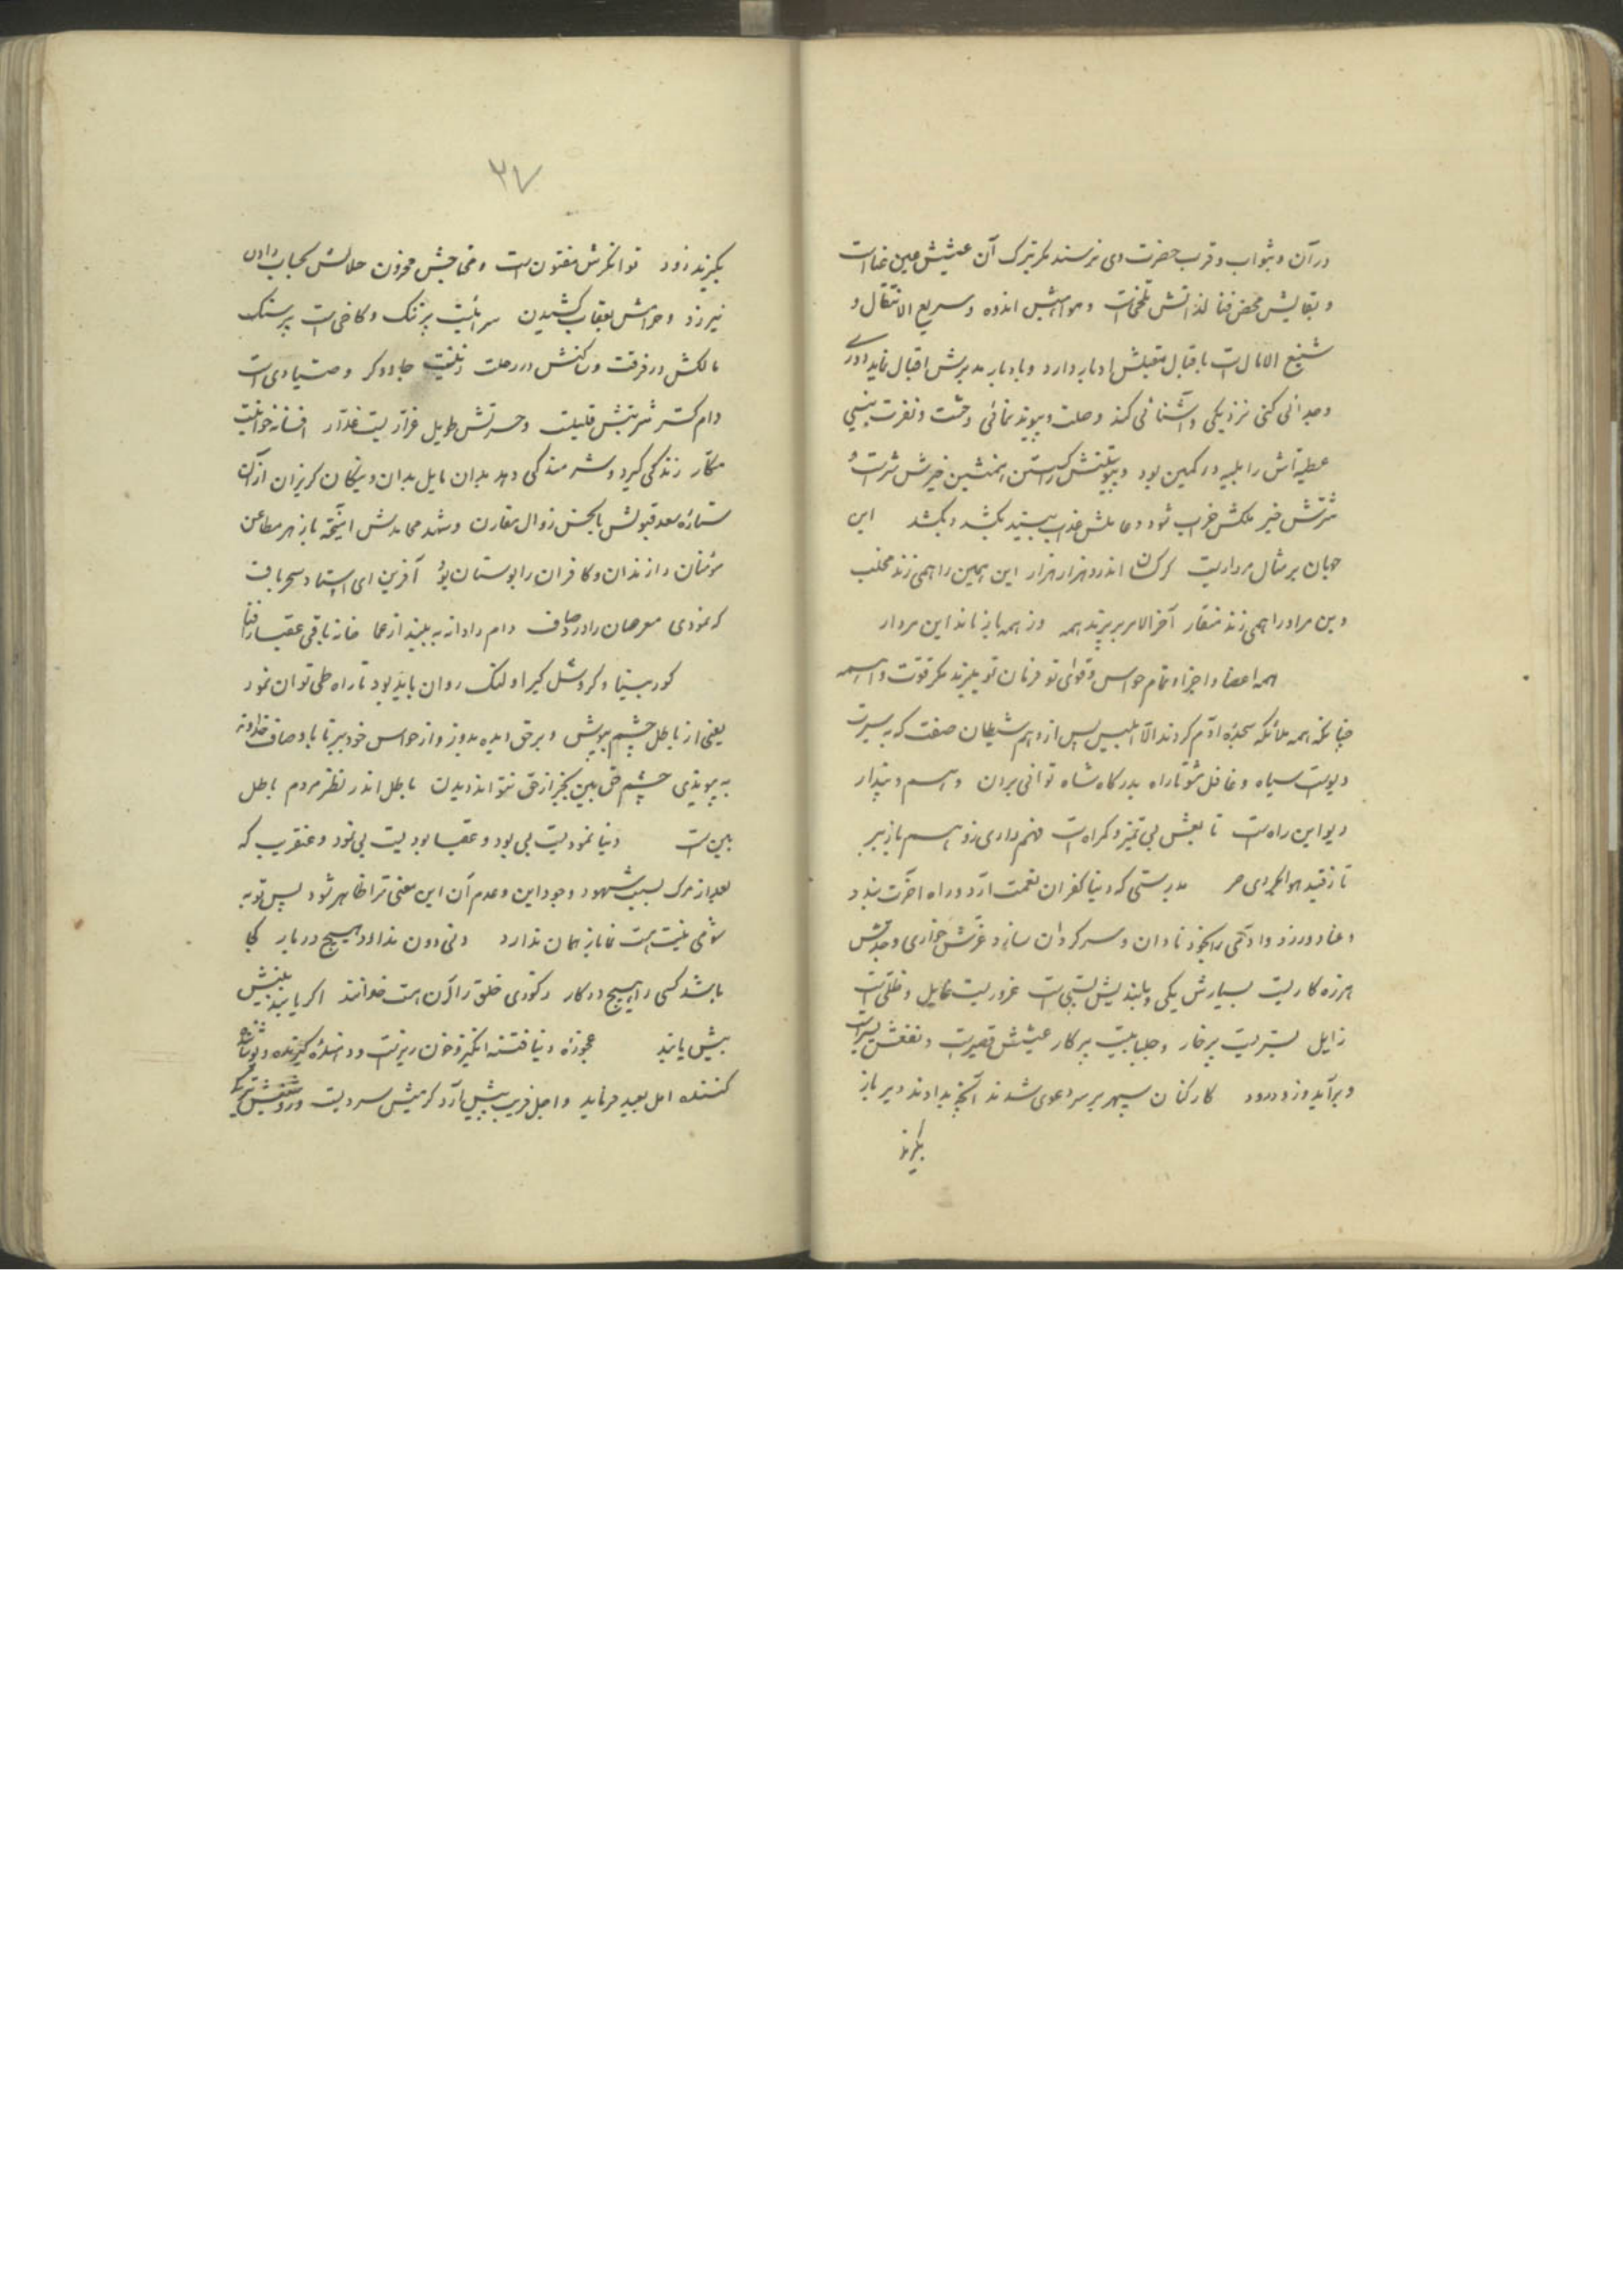 در آن و بثواب و قرب حضرت وی نرسند مگر بترک آن عیشش عین عناست
و بقایش محض فنا لذاتش تلخست و مواهبش اندوه و سریع الانتقال و
شنیع الامال است باقبال مقبلش ادبار دارد و بادبار مدبرش اقبال نماید دوری
و جدائی کنی نزدیکی و آشنائی کند وصلت و پیوند نمائی وحشت و نفرت بینی
عطیه‌اش را بلیه در کمین بود و همنشین خیرش شر است و
شرش خیر ملکش خراب شود و عاملش عذاب بیند بکشد و بکشد این
جهان بر مثال مرداریست کرکسان اندرو هزار هزار این همین را همی زند مخلب
وین مر او را همی زند منقار آخر الامر بر پرند همه وز همه باز ماند این مردار
همه اعضا و اجزا و تمام حواس و قوای تو فرمان تو بپذیرند مگر قوت واهمه
چنانکه همه ملائکه سجده آدم کردند الا ابلیس پس از وهم شیطان صفت که بسیرت
دیوست سیاه و غافل شو تا راه بدرگاه شاه توانی بردن وهم و پندار
دیو این راهست تابعش بی تمیز و گمراهست فهم داری زوهم باز ببر
تا ز قید هوا گردی حر بدرستی که دنیا کفران نعمت آرد و راه آخرت بندد
و عناد ورزد و آدمی را بخود نادان و سرگردان سازد عزتش خواری و جدش
هرزه کاریست بسیارش یکی و بلندیش پستی است غروریست حایل و ظلی است
زایل بستریست پر خار و جلبابیست پرکار عیشش قصیرست و نفعش یسیرست
دیر آید و زود رود کارکنان سپهر بر سر دعوی شدند آنچه بدادند دیر باز
بگیرند
۲۷
بگیرند زود توانگرش مفتونست و محتاجش محزون حلالش بحساب دادن
نیرزد و حرامش بعقاب کشیدن سرائیست پر ننگ و کاخی است پر سنگ
مالکش در فرقت و ساکنش در رحلت زنیست جادوگر و صیادی است
دام گستر شربتش قلیلست و حسرتش طویل غراریست غدار افسانه خوانیست
مکار زندگی گیرد و شرمندگی دهد بدان مایل بدان و نیکان گریزان از آن
ستاره سعد قبولش با نحس زوال مقارن و شهد محامدش آمیخته با زهر مطاعن
مؤمنان را زندان و کافران را بوستان بود آفرین ای استاد سحرباف
که نمودی معرضان را درد صاف دام را دانه به بیند از عما خانه باقی عقبا را فنا
کور بینا و کر و شل گیرا و لنگ روان باید بود تا راه طی توان نمود
یعنی از باطل چشم بپوش و بر حق دیده بدوز و از حواس خود ببر تا باوصاف خداوند
به پیوندی چشم حق بین بجز از حق نتواند دیدن باطل اندر نظر مردم باطل
بین است دنیا نمودیست بی بود و عقبا بودیست بی نمود و عنقریب که
بعد از مرگ بسبب شهود وجود این و عدم آن این معنی ترا ظاهر شود پس توبه
شومی نیست هست نما باز همان ندارد دنی دون ندارد هیچ در بار کجا
باشد کسی را هیچ در کار ز کوری خلق را آن هست خوانند اگر یابند بینش
بیش یابند عجوزه دنیا فتنه انگیز و خون ریزست و درنده گیرنده و
کشنده امل بعید فرماید و اجل قریب پیش آرد گرمیش سردیست و